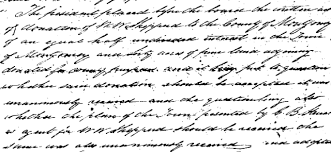 The president placed before the board the written act
of donation of W W Shepperd to the County of Montgomery
of an equal half undivided interest in the Town
of Montgomery and sixty acres of pine land adjoining
donated for County purposes and it being put to question
whether said donation should be accepted it was
unanimously received and the question being also
whether the plan of the Town presented by C B Stewart
as agent for W W Shepperd should be received the
same was also unanimously received and adopted